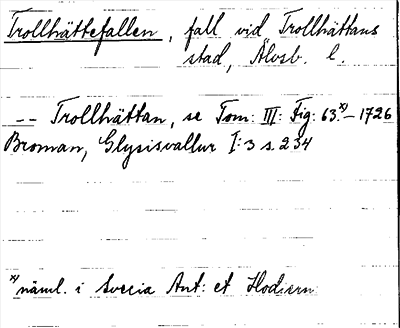 Trollhättefallen, fall vid Trollhättans
stad, Älvsb. l.
-- Trollhättan, se Tom: III: Fig: 63.x) - 1726
Broman, Glysisvallur I:3 s. 234
x) näml. i Svecia Ant: et Hodiern